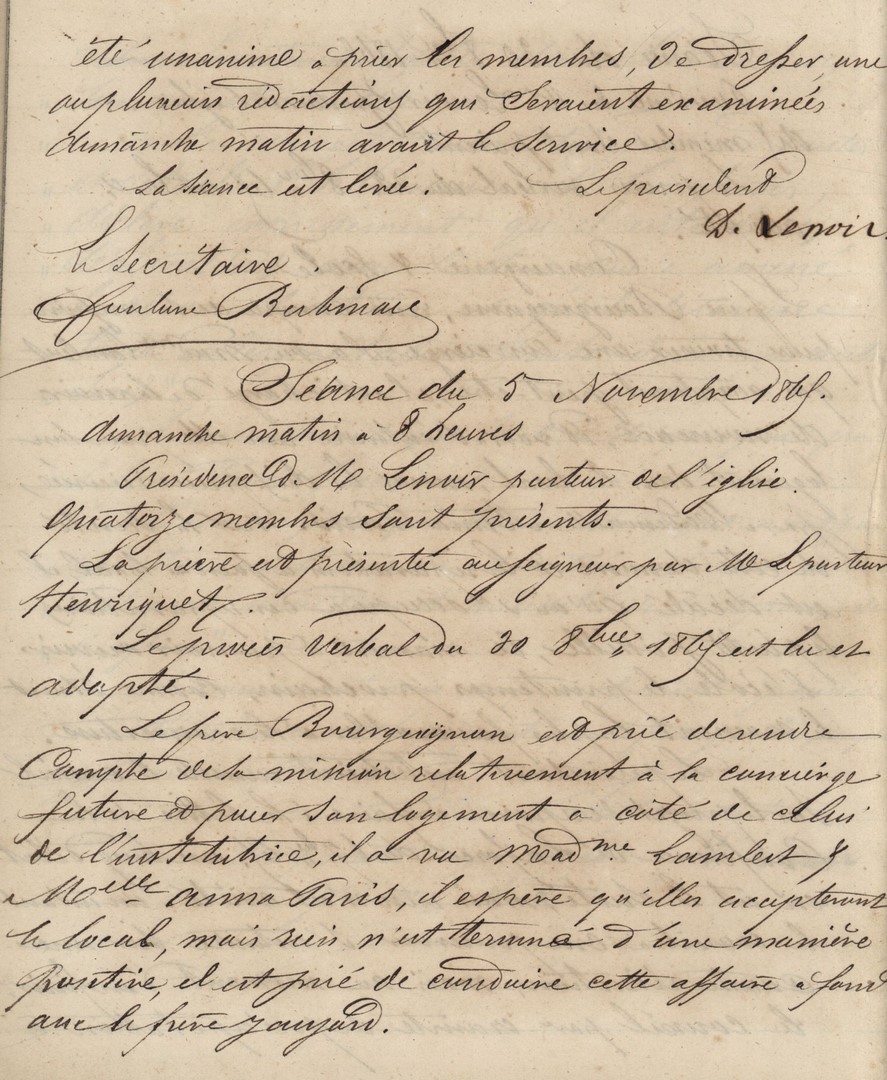 été unanime a prier les membres, de dresser, une
ou pluseuis rédactions qui seraient examinées
dimanche matin avant le service.
La séance est levée. Le président
D. Lenoir.
Le secrétaire.
Séance du 5 Novembre 1865.
dimanche matin à 8 heures
Présidence d. M Lenoir pasteur de l'église.
quatorze membres sont présents.
La prière est présentée au seigneur par M Le pasteur
Henriquet.
Le procès verbal du 20 8bre 1865 est lu et
adopté.
Le frère Bourguignon est prié de rendre
Compte de sa mission relativement à la concierge
future et pour son logement a côté de celui
de l'institutrice, il a vu Madme Lambert &
Melle anna Paris, il espère qu'elles accepteront
le local, mais rien n'est terminé d'une manière
positive, il est prié de conduire cette affaire a fond
avec le frère